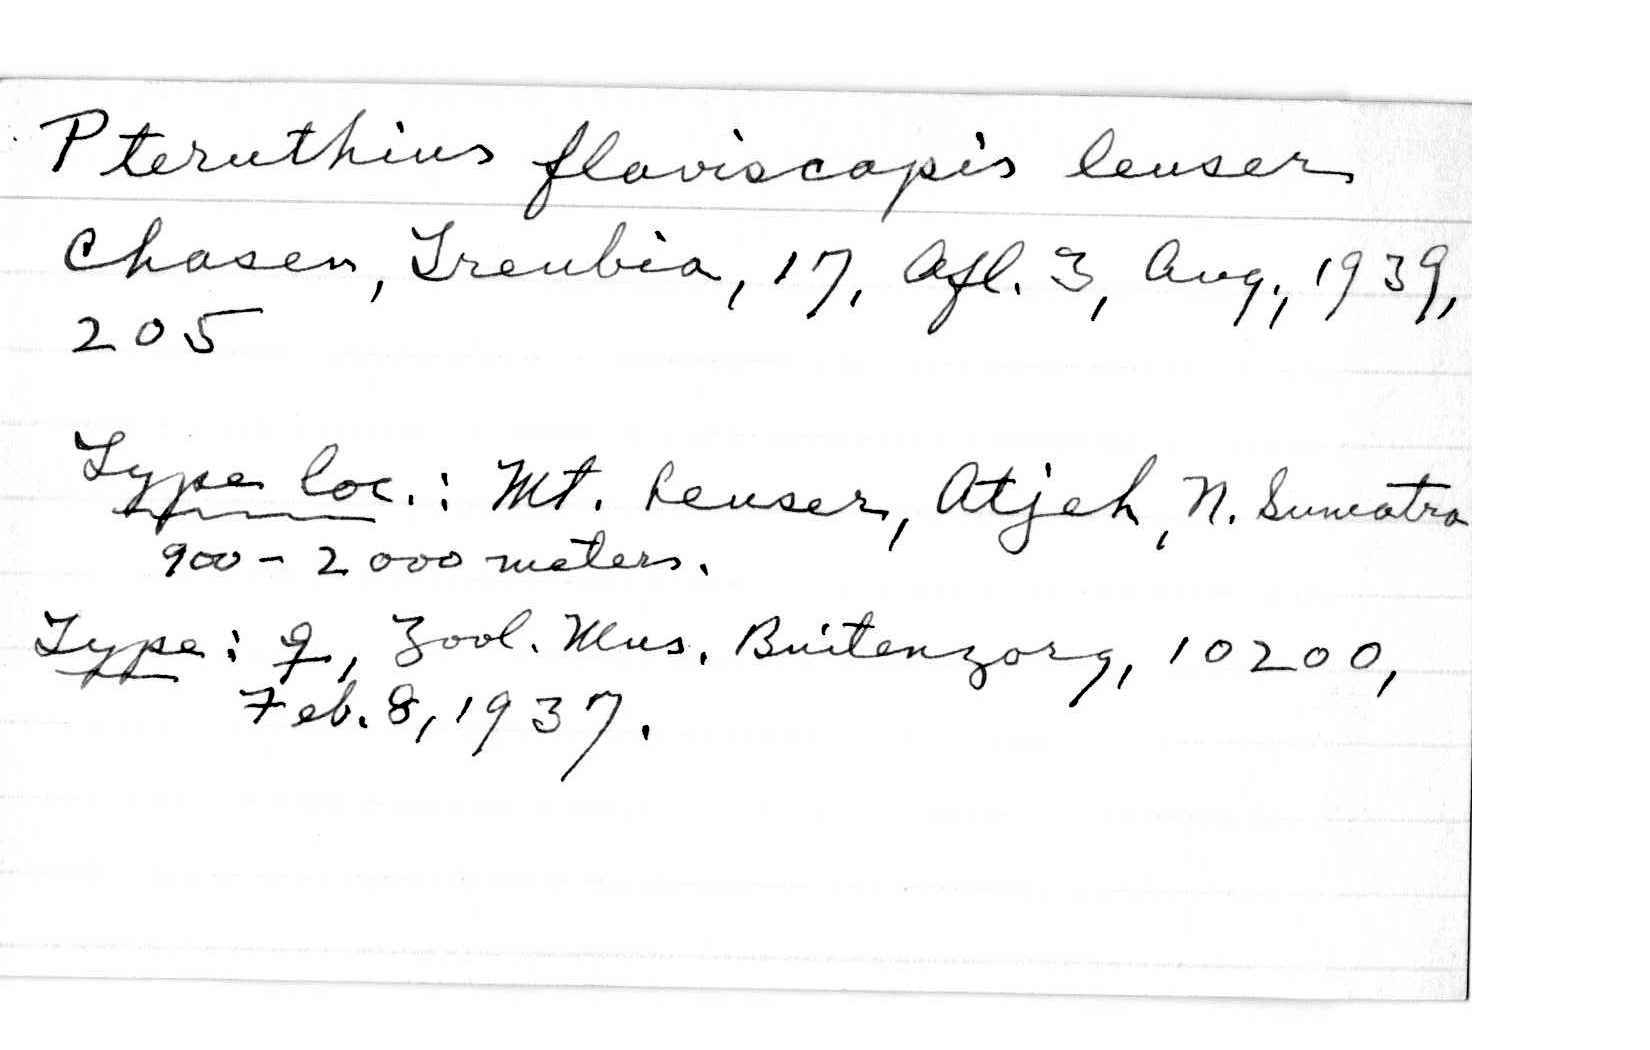 Pteruthius flaviscapis leuser
Chasen, Treubia, 17, Afl. 3, Aug., 1939,
205
Type loc.: Mt. Leuser, Atjeh, N. Sumatra
900 - 2000 meters.
Type: ♀, Zool. Mus. Buitenzorg, 10200,
Feb. 8, 1937.